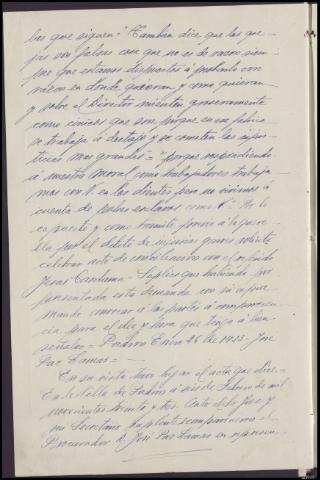 las que siguen: "Tambien dice que las que-
jas son falsas cosa que no es de razon siem-
pre que estamos dispuestos á probarlo con
razones en donde quieran y como quieran
y sobre el Director mienten groseramente
como cinicos que son porque en esa fabrica
se trabaja á destajo y se cometen las injus-
ticias mas grandes" = "porque respondiendo
á nuestro honor como trabajadores trabaja-
mos con V. en las dichas pero no vivimos á
cuenta de pobres esclavos como V." = Por lo
expuesto y como tramite previo á la quere-
lla por el delito de injurias graves solicito
celebrar acto de conciliacion con el referido
Jesus Cardama = Suplico que habiendo por
presentada esta demanda con su copia
mande convocar á las partes á comparecen-
cia para el dia y hora que tenga á bien
señalar = Padron Enero 26 de 1933. Jose
Paz Lamas = —
En su vista tuvo lugar el acta que dice =
En la Villa de Padron á seis de Febrero de mil
novecientos treinta y tres. Ante el Sr. Juez y
mi Secretario suplente comparecieron: el
Procurador D. Jose Paz Lamas en represen-